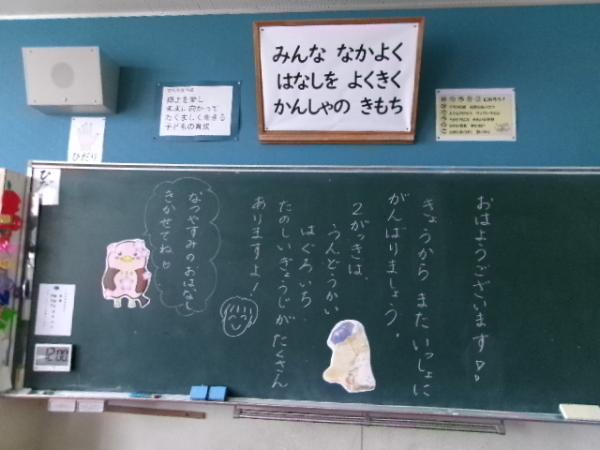 みんな なかよく
はなしを よくきく
かんしゃの きもち
郷土を愛し
未来に向かって
たくましく生きる
子どもの育成
ひだり
おはようございます
きょうから またいっしょに
がんばりましょう。
2がっきは、
うんどうかい
はぐろいち
たのしいぎょうじが たくさん
ありますよ！
なつやすみの おはなし
きかせてね
12:00